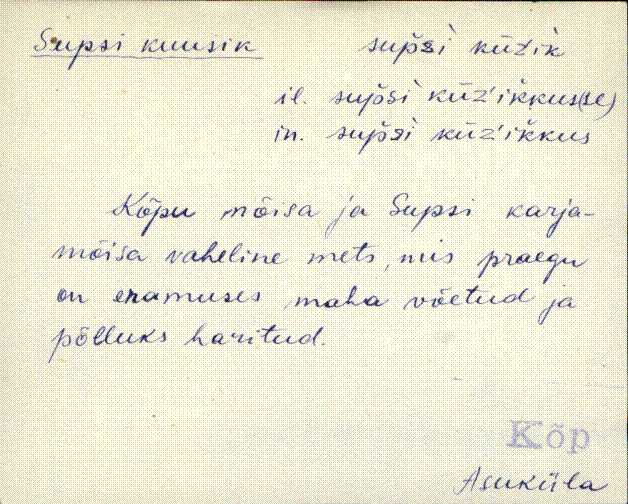 Supsi kuusik supˇsì kūzik
il. supˇsì kūz'ikˇkus(se)
in. supˇsì kūz'ikˇkus
Kõpu mõisa ja Supsi karja-
mõisa vaheline mets, mis praegu
on enamuses maha võetud ja
põlluks haritud.
Kõp
Asuküla